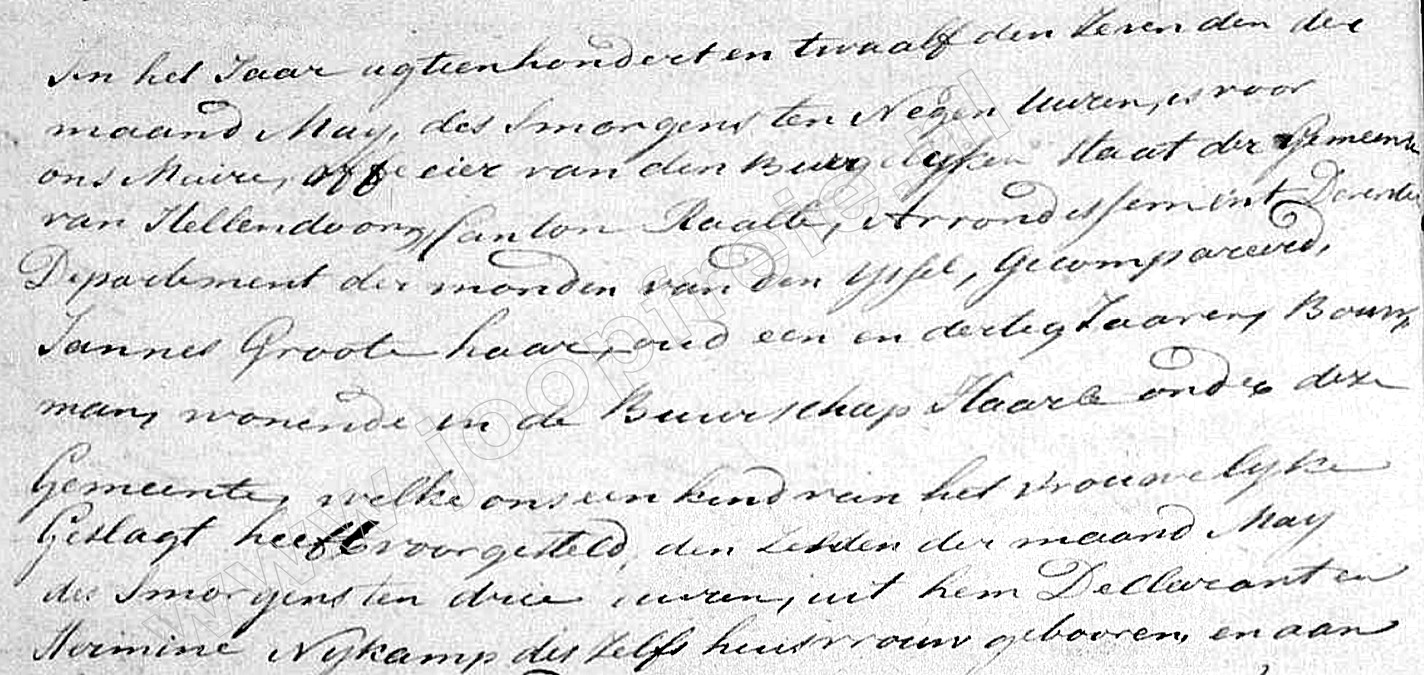 In het Jaar agtienhondert en twaalf den Zevenden der
maand May, des Smorgens ten Negen Uuren, is voor
ons Maire, Officier van den Burgelyken Staat der Gemeente
van Hellendoorn, Canton Raalte, Arrondissement Deventer
Departement der monden van den Yssel, Gecompareerd,
Jannes Groote haar, oud een en dertig Jaaren, Bouw
man, wonende in de Buurschap Haarle onder deze
Gemeente, welke ons een kind van het vrouwelyke
Geslagt heeft voorgesteld, den zesden der maand May
des Smorgens ten drie uuren, uit hem Declarant en
Hermine Nykamp des zelfs huisvrouw gebooren, en aan
www.joopfreie.nl